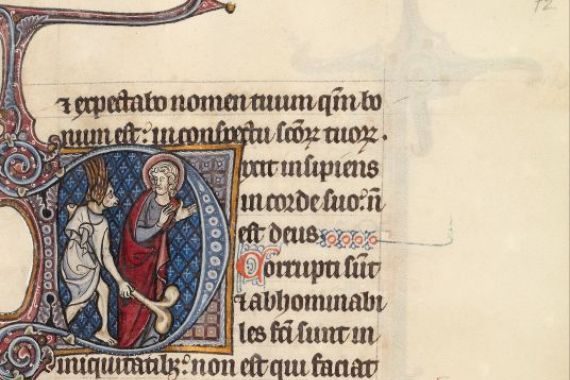 12
⁊ expectabo nomen tuum qm̄ bo
num est: in conspectu scōꝝ tuoꝝ.
Dixit insipiens
in corde suo: n̄
est deus
Corrupti sūt
⁊ abhominabi
les fcī sunt in
iniquitatibꝫ: non est qui faciat